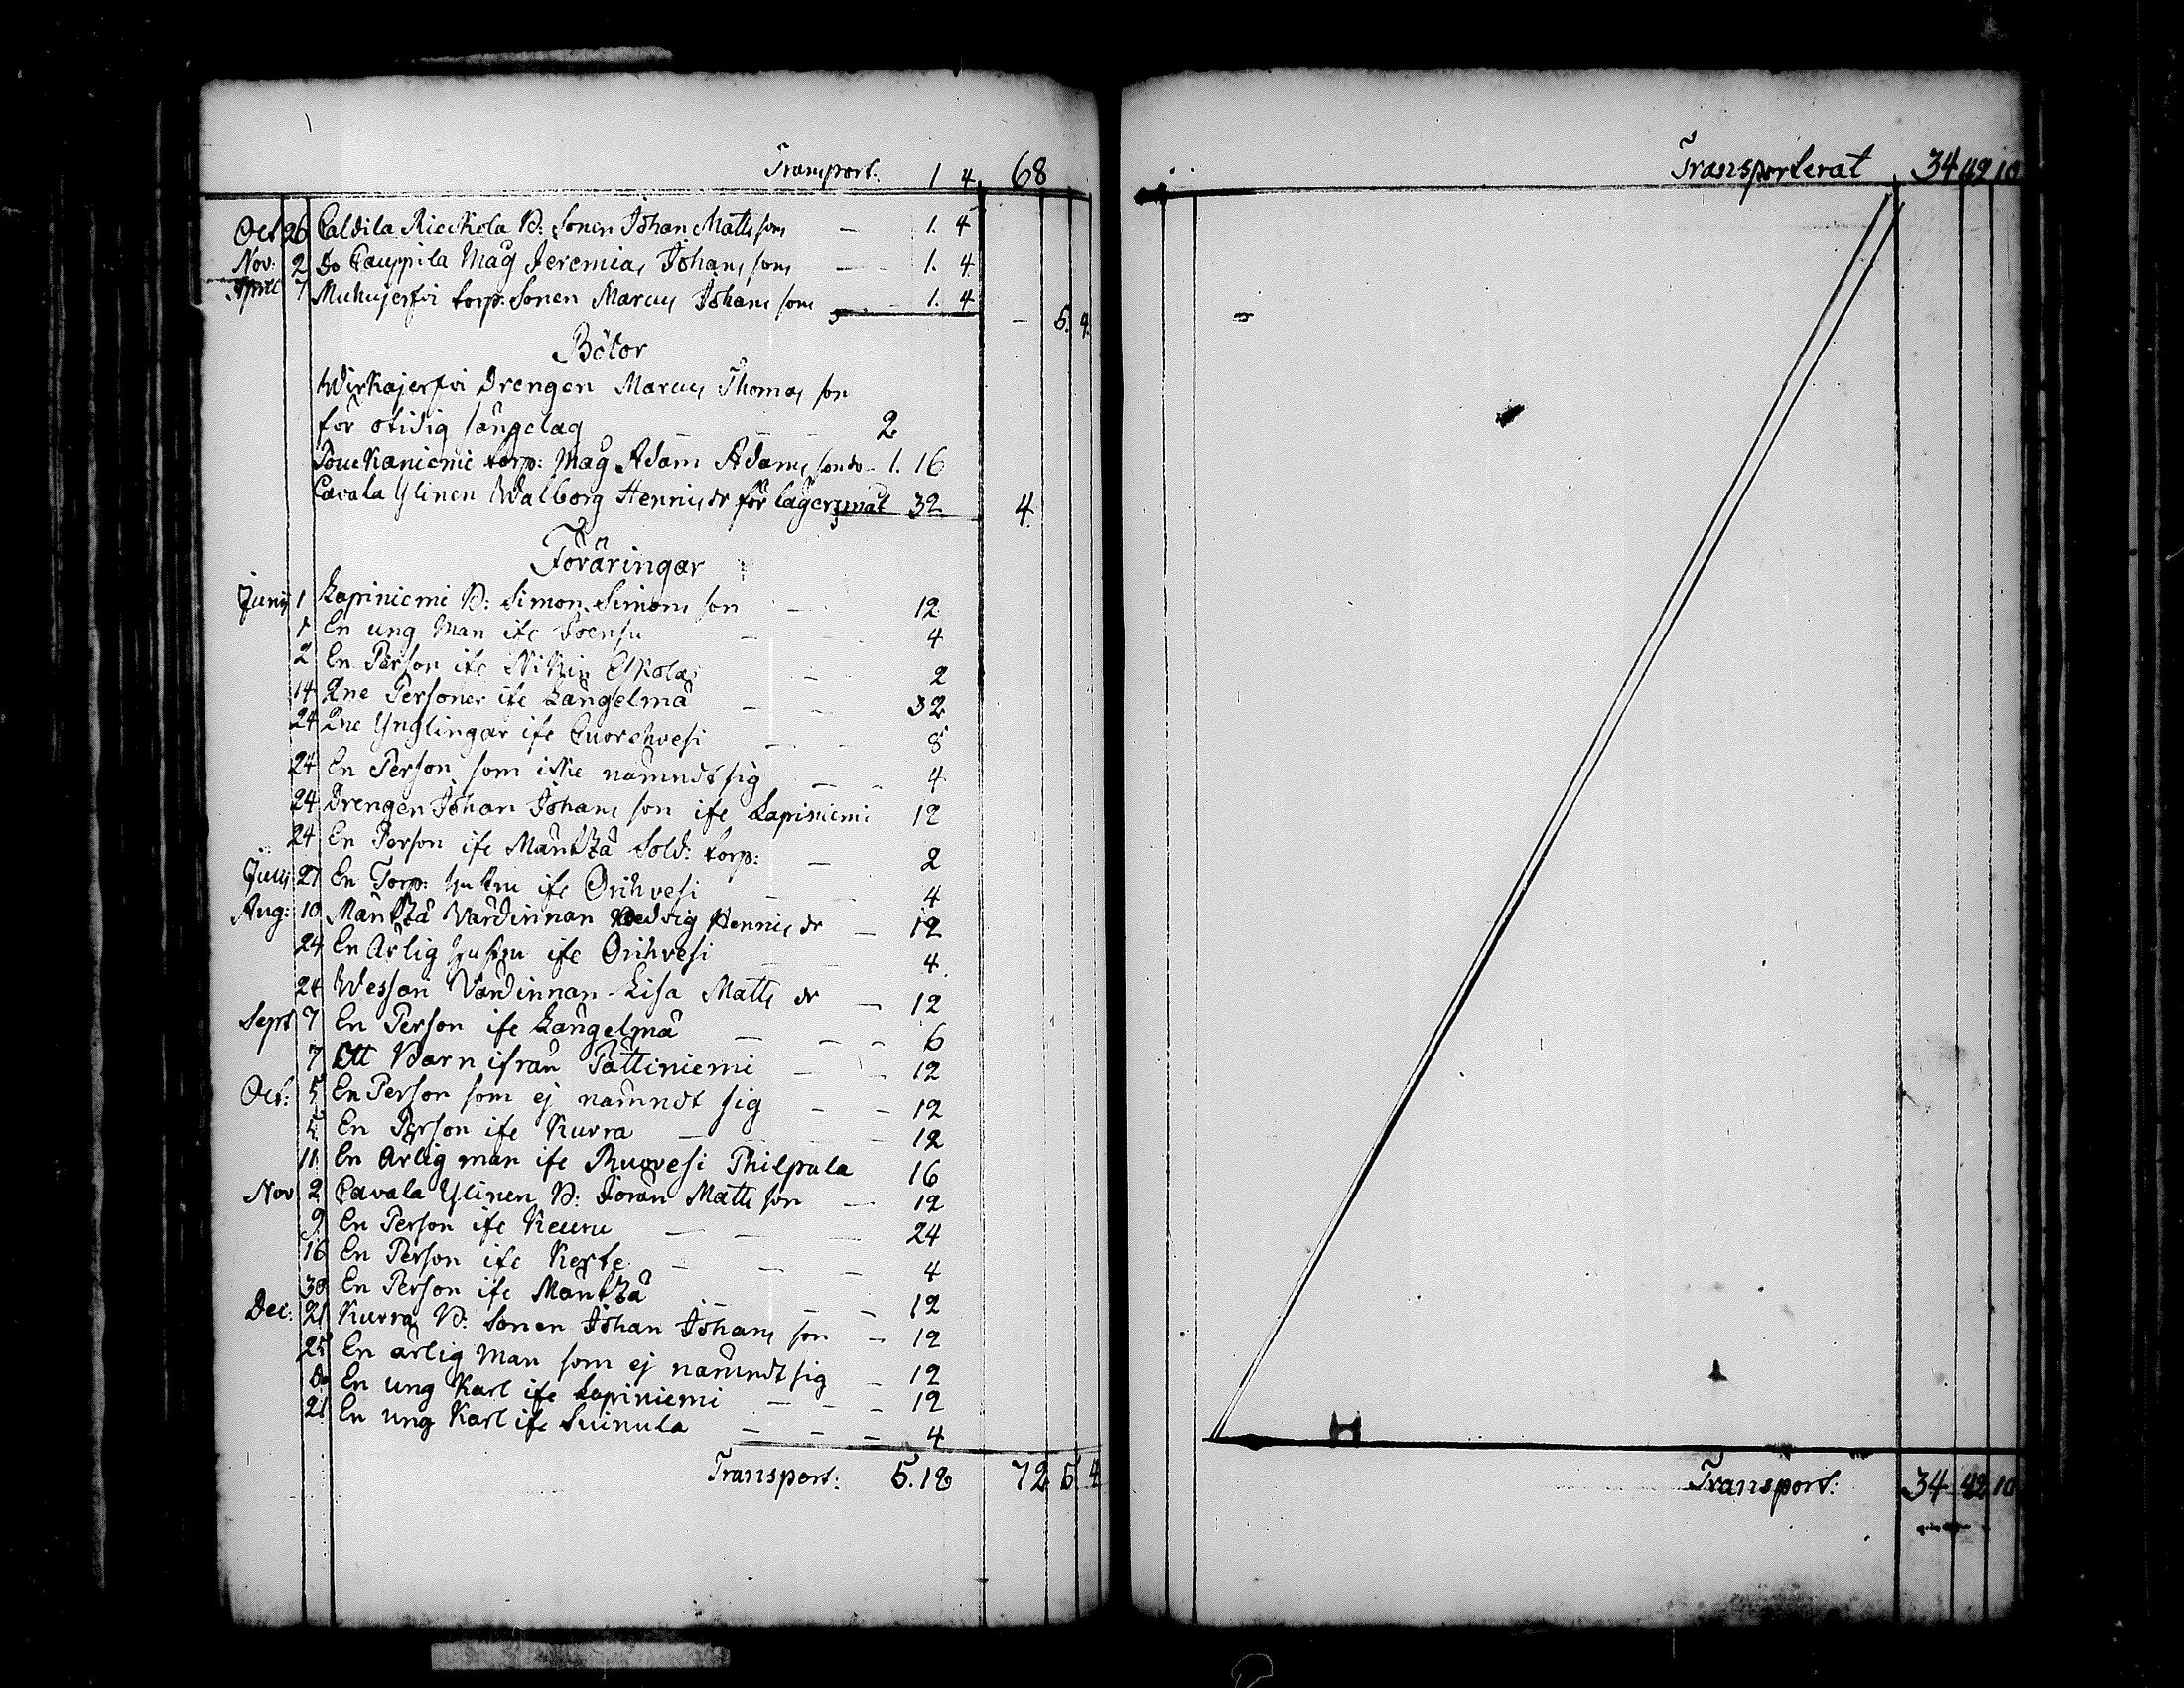 Transport: 1 4 68
Oct 26 Caldila Rieckola B: Sonen Johan Matts son — 1. 4
Nov: 2 Do Cauppila Måg Jeremias Johans son — 1. 4
April 7 torp: Sonen Marcus Johans son 1. 4
— 5. 4.
Böter
Wirkajerfvi Drengen Marcus Thomas son
för otidig sängelag — — — 2
torp: Måg Adam Adams son do — 1. 16
Cavala Ylinen Walborg Henrics dr för lägersmål 32 4.
Föräringar
Junij 1 Lapiniemi B: Simon Simons son — 12
1 En ung Man ifr Joensu — — 4
2 En Person ifr — 2
14 2ne Personer ifr Längelmä — — 32
24 2ne Ynglingar ifr Cuorehvesi — — 8
24 En Person som icke nämndt sig — — 4
24 Drengen Johan Johans son ifr Lapiniemi 12
24 En Person ifr Mäntzä Sold: torp: — 2
Julij 27 En Torp: hustru ifr Orihvesi — — 4
Aug: 10 Mäntzä Värdinnan Hedvig Henrics dr — 12
24 En Ärlig hustru ifr Orihvesi — — 4.
24 Wessan Värdinnan Lisa Matts dr — 12
Sept 7 En Person ifr Längelmä — — — 6
7 Ett Barn ifrån Pättiniemi — — 12
Oct: 5 En Person som ej nämndt sig — — 12
5 En Person ifr Kurra — — 12
11 En Ärlig man ifr Ruovesi Philpula 16
Nov 2 Cavala Ylinen B: Jöran Matts son — 12
9 En Person ifr Keuru — — — 24
16 En Person ifr — — — 4
30 En Person ifr Mäntzä — — — 12
Dec: 21 Kurra B: Sonen Johan Johans son — 12
25 En ärlig Man som ej nämndt sig — 12
Do En ung Karl ifr Lapiniemi — — — 12
21 En ung Karl ifr Suinula — — — 4
Transport: 5. 12 72 5 4
Transporterat 34 42 10
Transport: 34 42 10